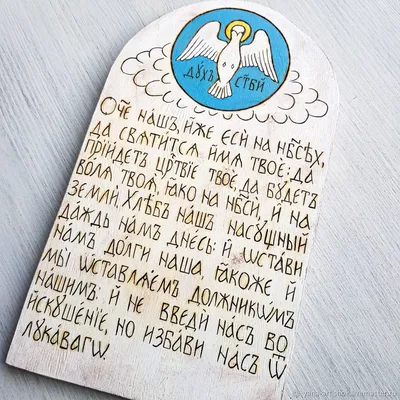 дꙋ́хъ ст҃ы́й
Ѻ҆́ч҃е нашъ, и҆́же є҆сѝ на нб҃сѣ́хъ,
да свѧти́тсѧ и҆́мѧ твоѐ: да
прїи́детъ ца́рствїе твоѐ, да бꙋ́детъ
во́лѧ твоѧ̀, ꙗ҆́кѡ на нб҃сѝ, и҆ на
землѝ, хлѣ́бъ нашъ насꙋ́щный
да́ждь намъ дне́сь: и҆ ѡ҆ста́ви
намъ до́лги нашѧ, ꙗ҆́коже, и҆
мы̀ ѡ҆ставлѧ́емъ должникѡ́мъ
нашимъ: и҆ не введѝ насъ во
и҆скꙋше́нїе, но и҆зба́ви насъ ѿ
лꙋка́вагѡ.